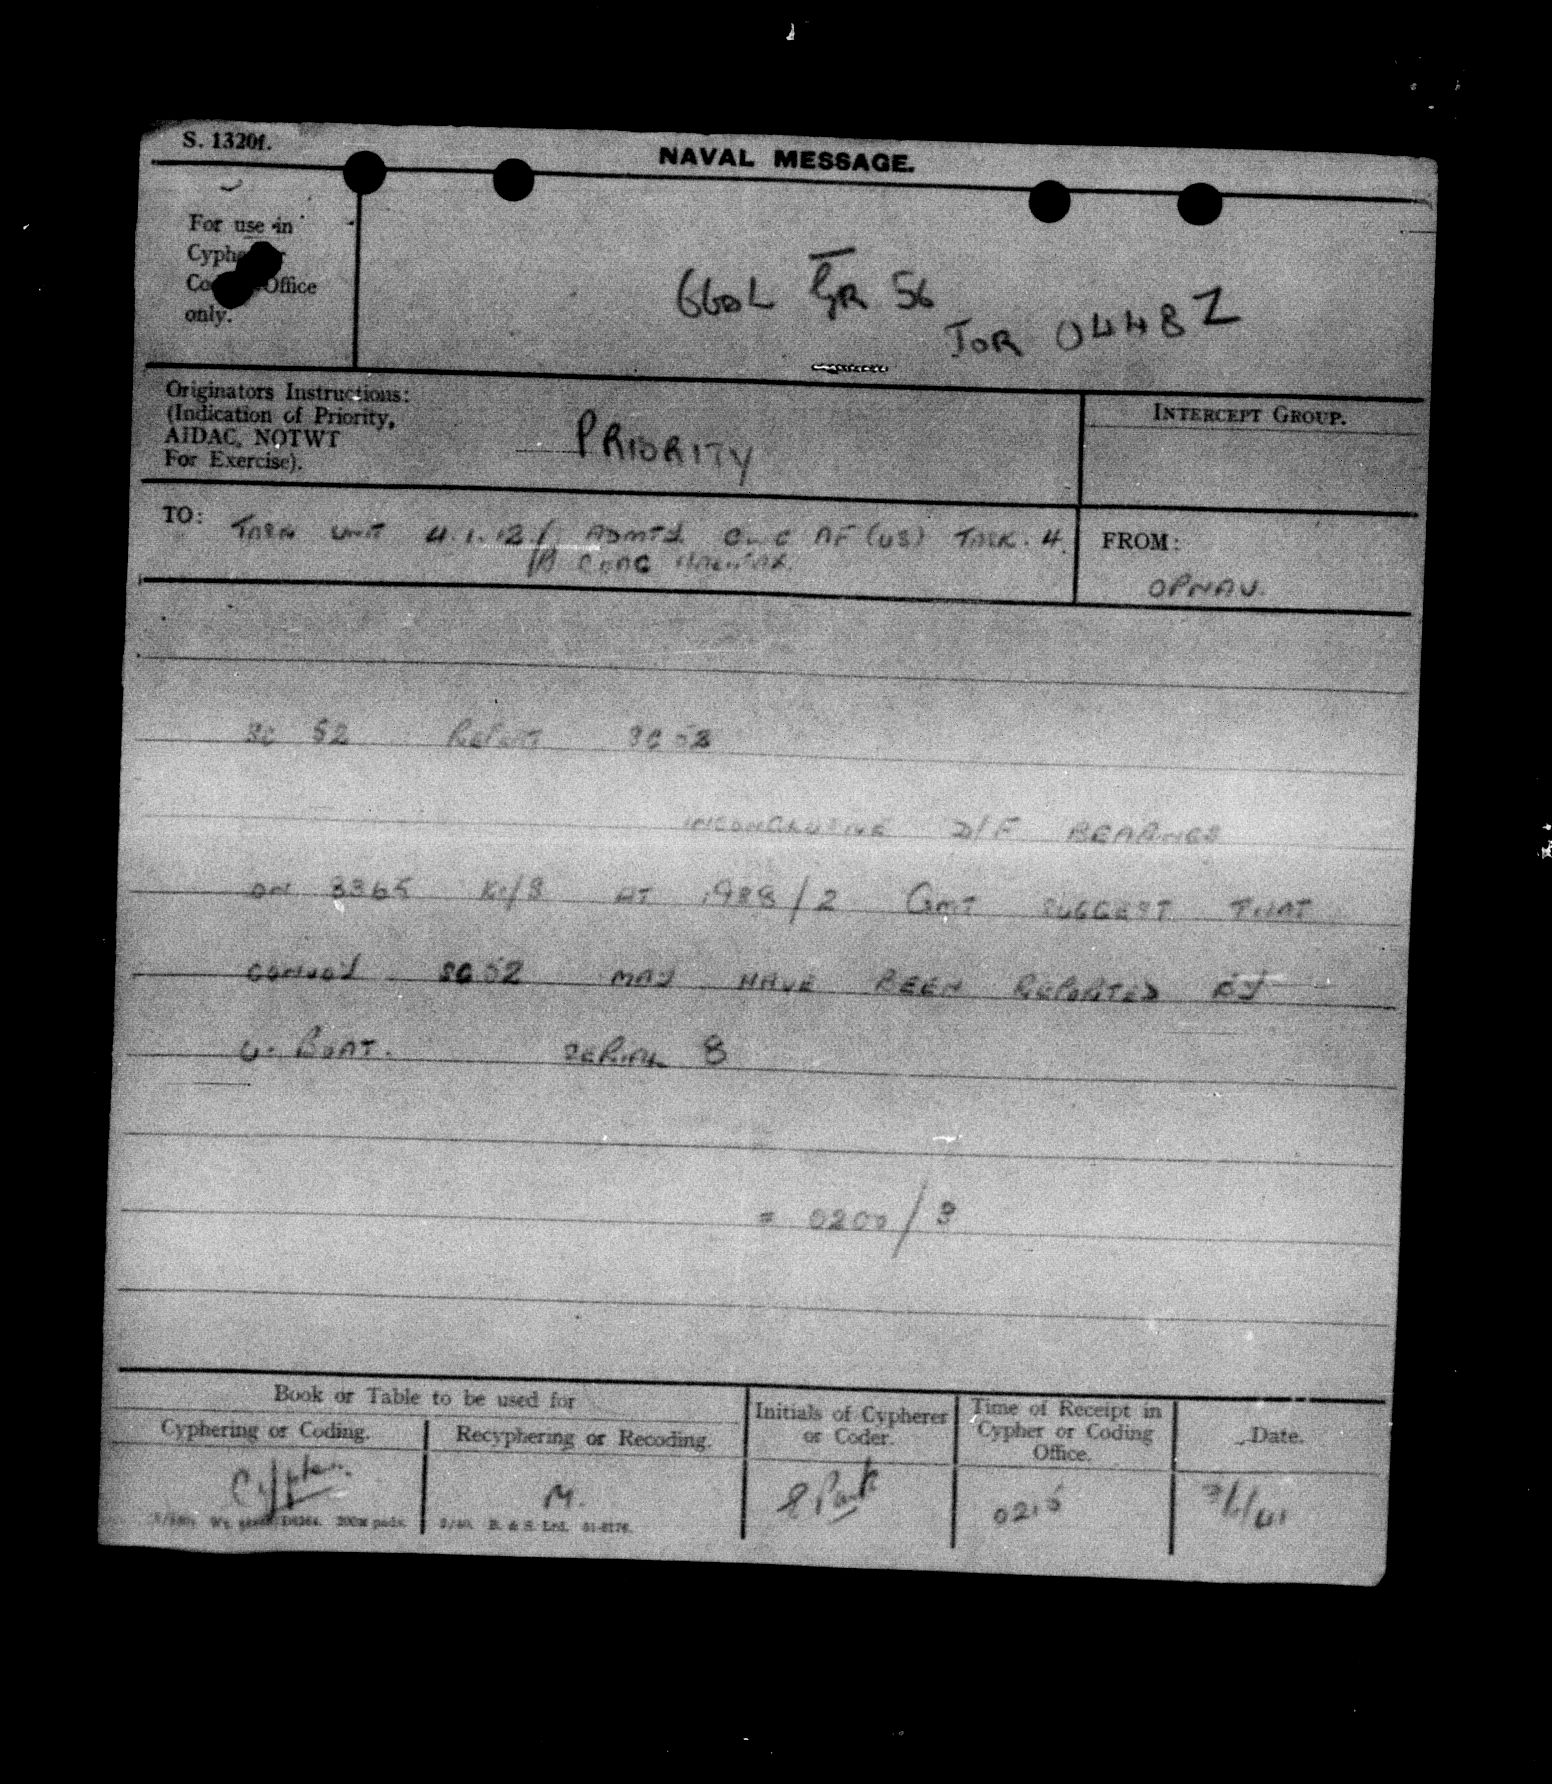 S. 1320f.
NAVAL MESSAGE.
For use in
Cypher
Office
only.
GR 56
TOR 0448Z
Originators Instructions:
(Indication of Priority,
AIDAC, NOTWT
For Exercise).
PRIORITY
INTERCEPT GROUP.
TO: TASK UNIT 4.1.12 / ADMTY CINC AF (US) TASK. 4.
COAC HALIFAX.
FROM:
OPNAV.
SC 52 REPEAT SC 52
INCONCLUSIVE D/F BEARINGS
ON 3365 KC/S AT 1928/2 GMT SUGGEST THAT
CONVOY SC 52 MAY HAVE BEEN REPORTED BY
U. BOAT. SERIAL 8
= 0200/3
Book or Table to be used for
Cyphering or Coding.
Recyphering or Recoding.
Initials of Cypherer
or Coder.
Time of Receipt in
Cypher or Coding
Office.
Date.
Cypher.
M.
0215